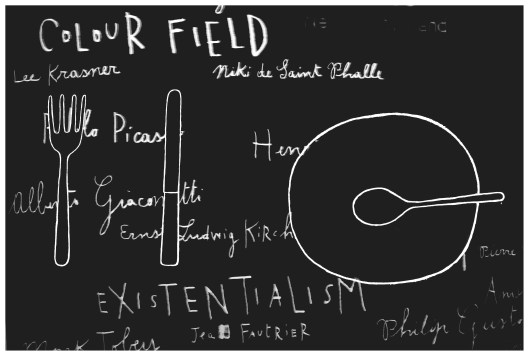 COLOUR FIELD
Lee Krasner
Niki de Saint Phalle
lo Picas
Hen
Alberto Giacometti
Ernst Ludwig Kirch
EXISTENTIALISM
Jean FAUTRIER
Philip Gusto
Mark Tobey